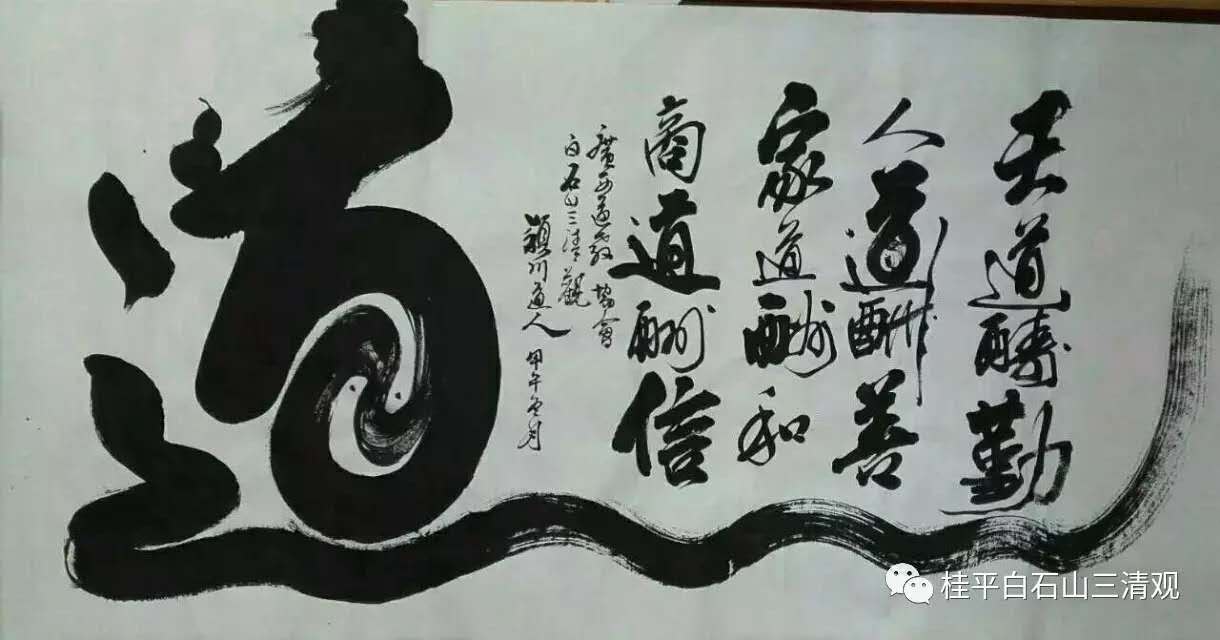 天道醻勤
人道酬善
家道酬和
商道酬信
廣西道教協會
白石山三清觀
潁川道人 甲午冬月
道
桂平白石山三清观